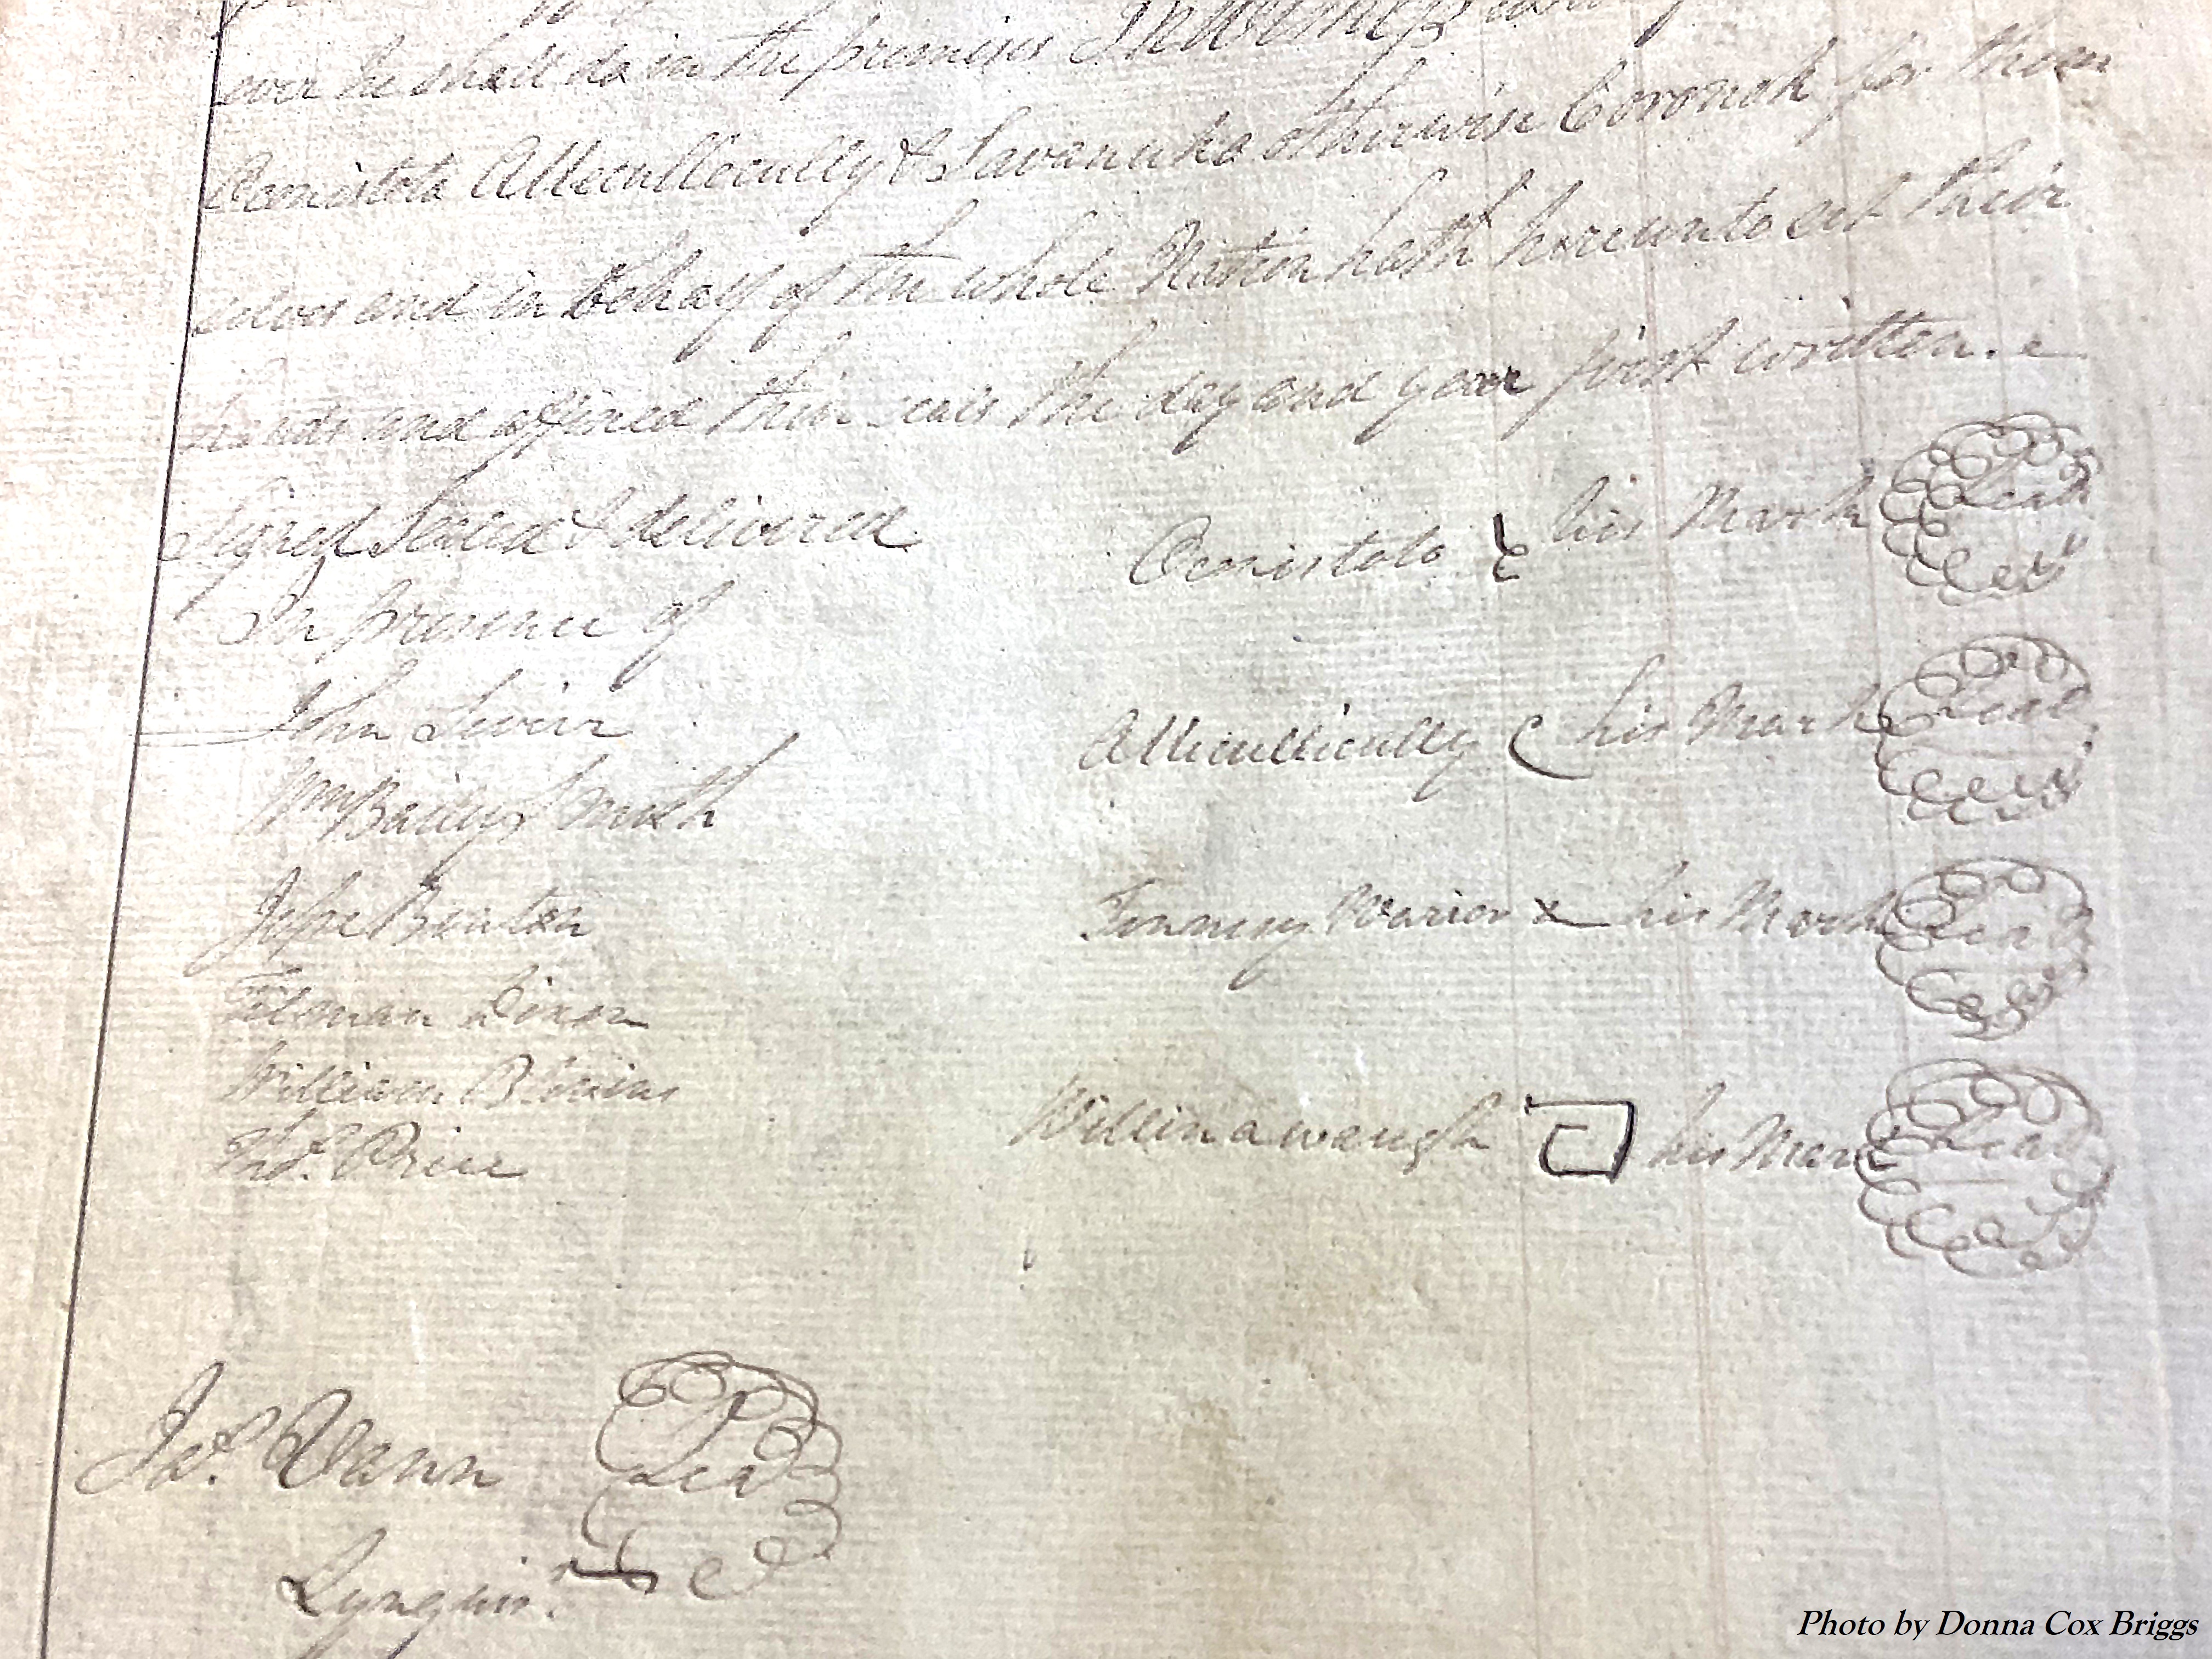 ever he shall do in the premises In Witness
Oconistoto Attecullocully & Savanuko otherwise Coronoh for them
selves and in behalf of the whole Nation hath hereunto set their
hands and affixed their seals the day and year first written.
Signed Sealed & delivered
In presence of
Oconistoto his Mark Seal
John Sevier
Attecullicully his Mark Seal
Wm Bailey Smith
Jesse Benton
Tennesy Warior x his Mark Seal
Tilman Dixon
William Blevins
Thos. Price
Willinawaugh his Mark Seal
Jos. Vann Seal
Lynguist.
Photo by Donna Cox Briggs